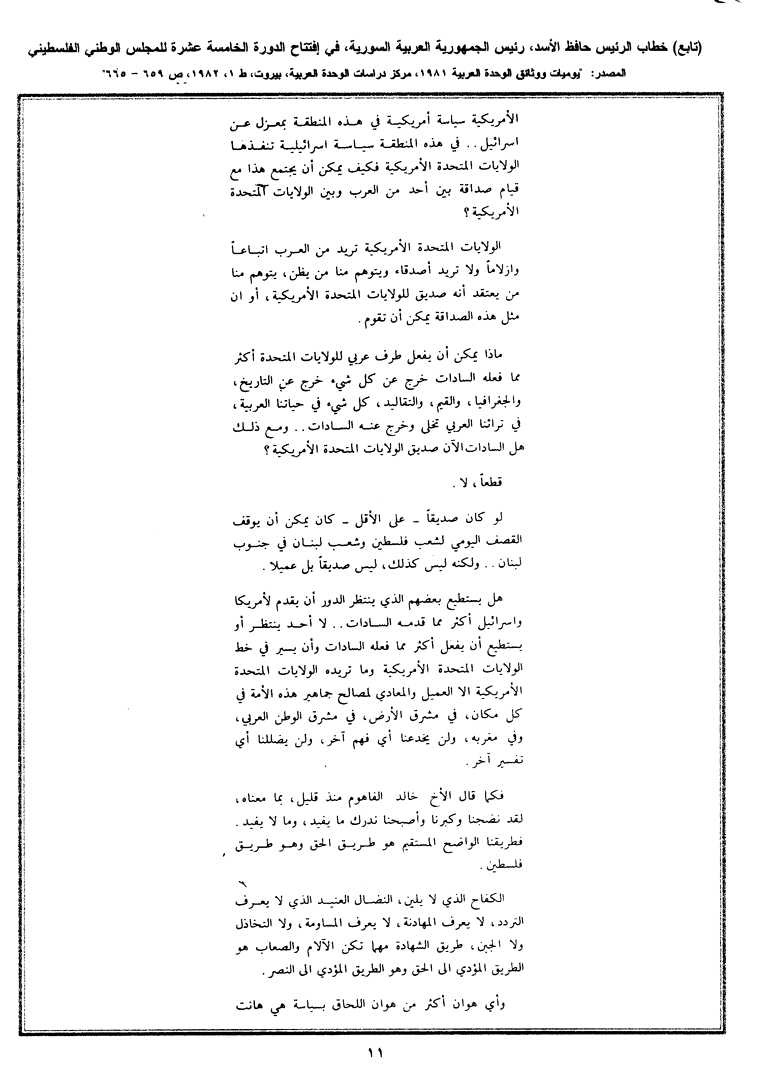 (تابع) خطاب الرئيس حافظ الأسد، رئيس الجمهورية العربية السورية، في إفتتاح الدورة الخامسة عشرة للمجلس الوطني الفلسطيني
المصدر: "يوميات ووثائق الوحدة العربية ١٩٨١، مركز دراسات الوحدة العربية، بيروت، ط ١، ١٩٨٢، ص ٦٥٩ - ٦٦٥"
الأمريكية سياسة أمريكية في هذه المنطقة بمعزل عن
اسرائيل.. في هذه المنطقة سياسة اسرائيلية تنفذها
الولايات المتحدة الأمريكية فكيف يمكن أن يجتمع هذا مع
قيام صداقة بين أحد من العرب وبين الولايات المتحدة
الأمريكية؟
الولايات المتحدة الأمريكية تريد من العرب اتباعاً
وازلاماً ولا تريد أصدقاء ويتوهم منا من يظن، يتوهم منا
من يعتقد أنه صديق للولايات المتحدة الأمريكية، أو ان
مثل هذه الصداقة يمكن أن تقوم.
ماذا يمكن أن يفعل طرف عربي للولايات المتحدة أكثر
مما فعله السادات خرج عن كل شيء خرج عن التاريخ،
والجغرافيا، والقيم، والتقاليد، كل شيء في حياتنا العربية،
في تراثنا العربي تخلى وخرج عنه السادات.. ومع ذلك
هل السادات الآن صديق الولايات المتحدة الأمريكية؟
قطعاً، لا.
لو كان صديقاً - على الأقل - كان يمكن أن يوقف
القصف اليومي لشعب فلسطين وشعب لبنان في جنوب
لبنان.. ولكنه ليس كذلك، ليس صديقاً بل عميلا.
هل يستطيع بعضهم الذي ينتظر الدور أن يقدم لأمريكا
واسرائيل أكثر مما قدمه السادات.. لا أحد ينتظر أو
يستطيع أن يفعل أكثر مما فعله السادات وأن يسير في خط
الولايات المتحدة الأمريكية وما تريده الولايات المتحدة
الأمريكية الا العميل والمعادي لمصالح جماهير هذه الأمة في
كل مكان، في مشرق الأرض، في مشرق الوطن العربي،
وفي مغربه، ولن يخدعنا أي فهم آخر، ولن يضللنا أي
تفسير آخر.
فكما قال الأخ خالد الفاهوم منذ قليل، بما معناه،
لقد نضجنا وكبرنا وأصبحنا ندرك ما يفيد، وما لا يفيد.
فطريقنا الواضح المستقيم هو طريق الحق وهو طريق
فلسطين.
الكفاح الذي لا يلين، النضال العنيد الذي لا يعرف
التردد، لا يعرف المهادنة، لا يعرف المساومة، ولا التخاذل
ولا الجبن، طريق الشهادة مهما تكن الآلام والصعاب هو
الطريق المؤدي الى الحق وهو الطريق المؤدي الى النصر.
وأي هوان أكثر من هوان اللحاق بسياسة هي هانت
١١